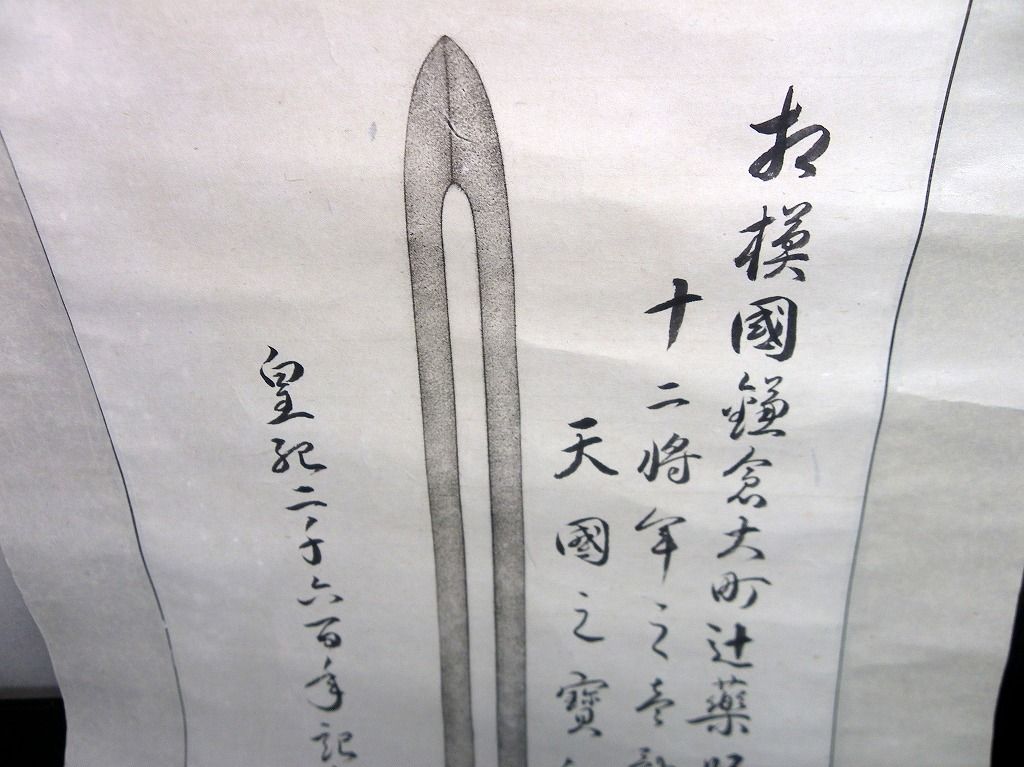 相模國鎌倉大町辻藥師
十二将軍之壱
天國之寶
皇紀二千六百年記